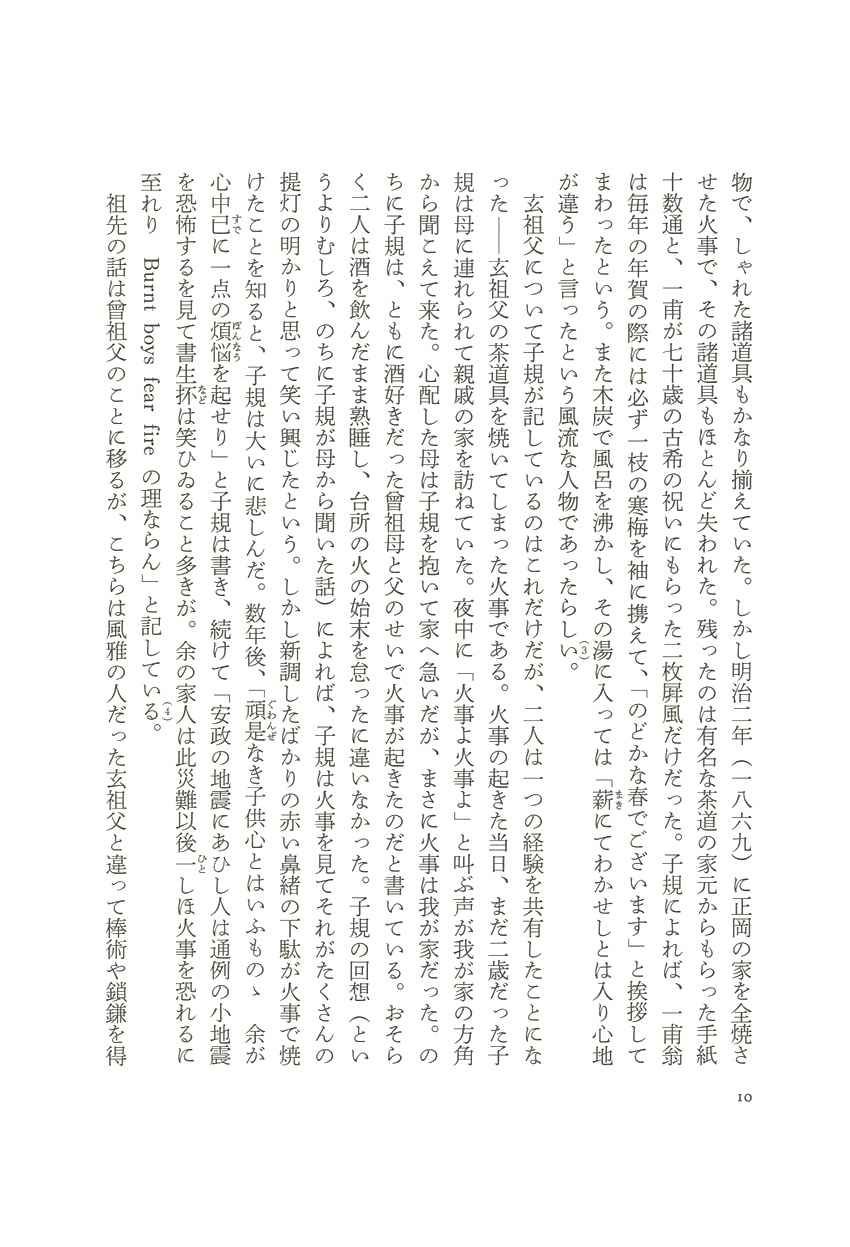 物で、しゃれた諸道具もかなり揃えていた。しかし明治二年（一八六九）に正岡の家を全焼さ
せた火事で、その諸道具もほとんど失われた。残ったのは有名な茶道の家元からもらった手紙
十数通と、一甫が七十歳の古希の祝いにもらった二枚屛風だけだった。子規によれば、一甫翁
は毎年の年賀の際には必ず一枝の寒梅を袖に携えて、「のどかな春でございます」と挨拶して
まわったという。また木炭で風呂を沸かし、その湯に入っては「薪にてわかせしとは入り心地
が違う」と言ったという風流な人物であったらしい。(3)
玄祖父について子規が記しているのはこれだけだが、二人は一つの経験を共有したことにな
った――玄祖父の茶道具を焼いてしまった火事である。火事の起きた当日、まだ二歳だった子
規は母に連れられて親戚の家を訪ねていた。夜中に「火事よ火事よ」と叫ぶ声が我が家の方角
から聞こえて来た。心配した母は子規を抱いて家へ急いだが、まさに火事は我が家だった。の
ちに子規は、ともに酒好きだった曾祖母と父のせいで火事が起きたのだと書いている。おそら
く二人は酒を飲んだまま熟睡し、台所の火の始末を怠ったに違いなかった。子規の回想（とい
うよりむしろ、のちに子規が母から聞いた話）によれば、子規は火事を見てそれがたくさんの
提灯の明かりと思って笑い興じたという。しかし新調したばかりの赤い鼻緒の下駄が火事で焼
けたことを知ると、子規は大いに悲しんだ。数年後、「頑是なき子供心とはいふものゝ　余が
心中已に一点の煩悩を起せり」と子規は書き、続けて「安政の地震にあひし人は通例の小地震
を恐怖するを見て書生抔は笑ひゐること多きが。余の家人は此災難以後一しほ火事を恐れるに
至れり　Burnt boys fear fire の理ならん」と記している。(4)
祖先の話は曾祖父のことに移るが、こちらは風雅の人だった玄祖父と違って棒術や鎖鎌を得
10